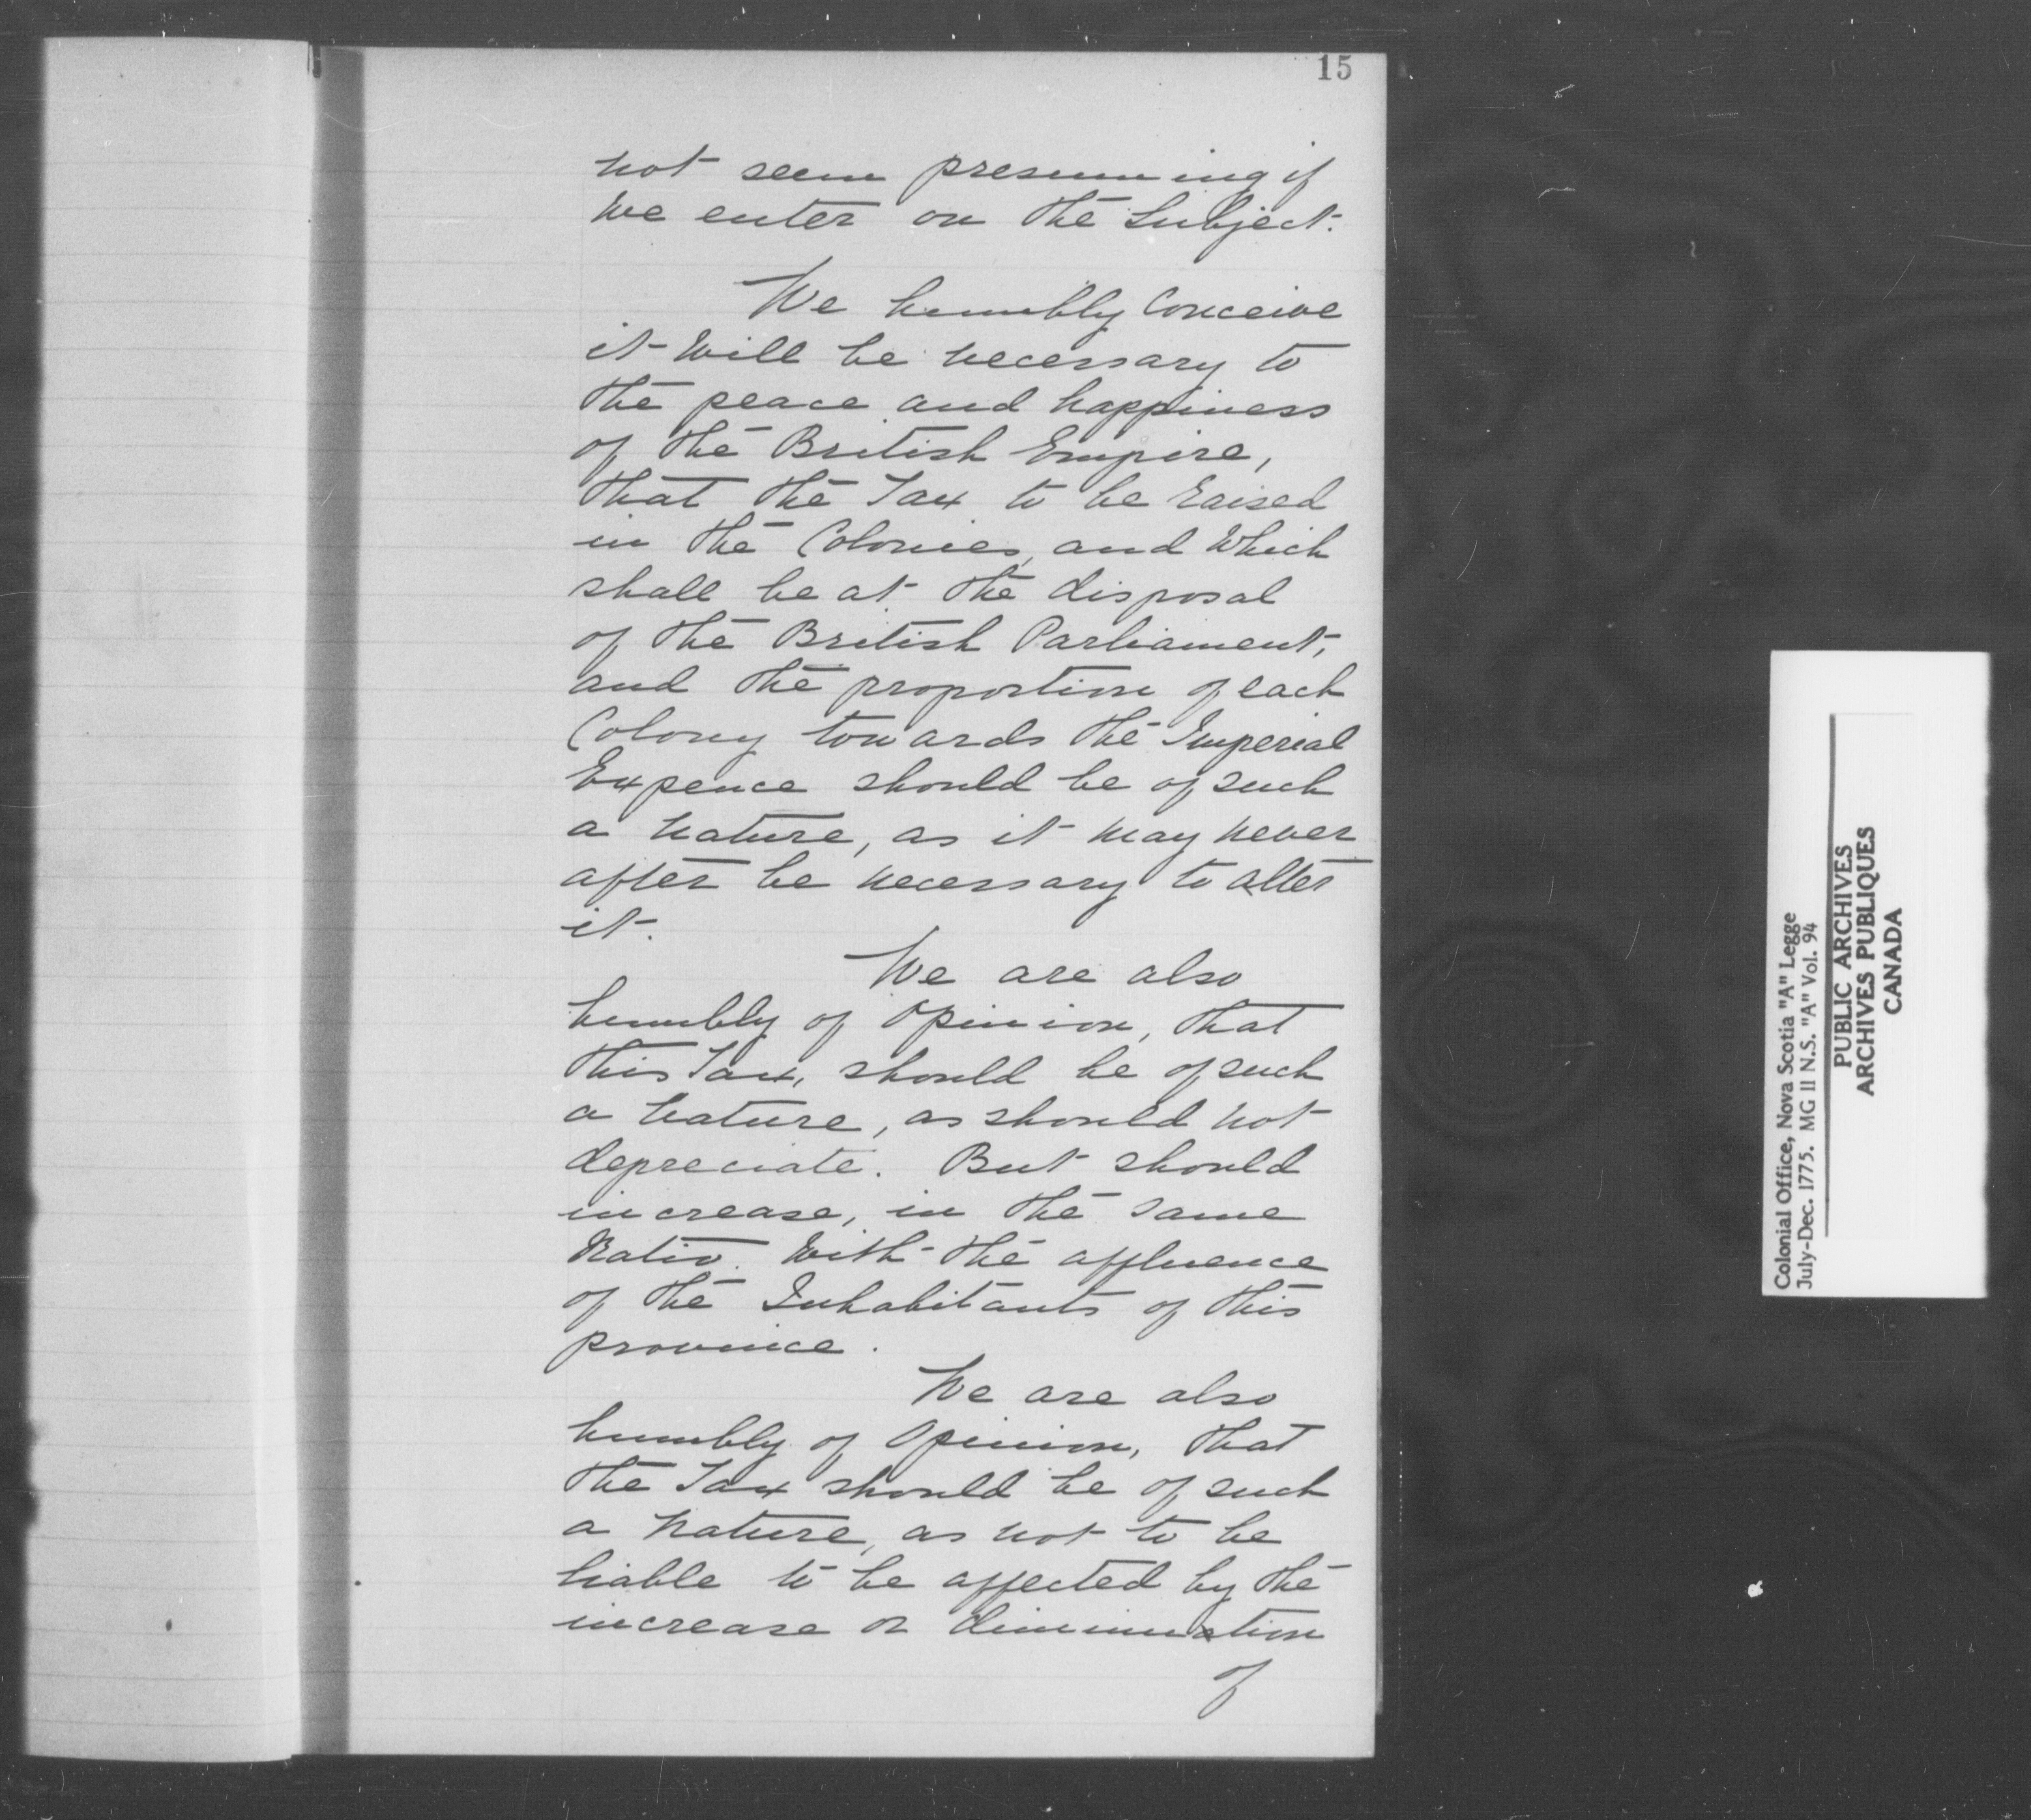 15
not seem presuming if
We enter on the Subject.
We humbly Conceive
it Will be necessary to
the peace and happiness
of the British Empire,
that the Tax to be raised
in the Colonies, and Which
shall be at the disposal
of the British Parliament,
and the proportion of each
Colony towards the Imperial
Expence should be of such
a nature, as it may never
after be necessary to alter
it.
We are also
humbly of Opinion, that
this Tax, should be of such
a nature, as should not
depreciate. But should
increase, in the same
Ratio. With the affluence
of the Inhabitants of this
province.
We are also
humbly of Opinion, that
the Tax should be of such
a nature, as not to be
liable to be affected by the
increase or diminution
of
Colonial Office, Nova Scotia "A" Legge
July-Dec. 1775. MG 11 N.S. "A" Vol. 94
PUBLIC ARCHIVES
ARCHIVES PUBLIQUES
CANADA